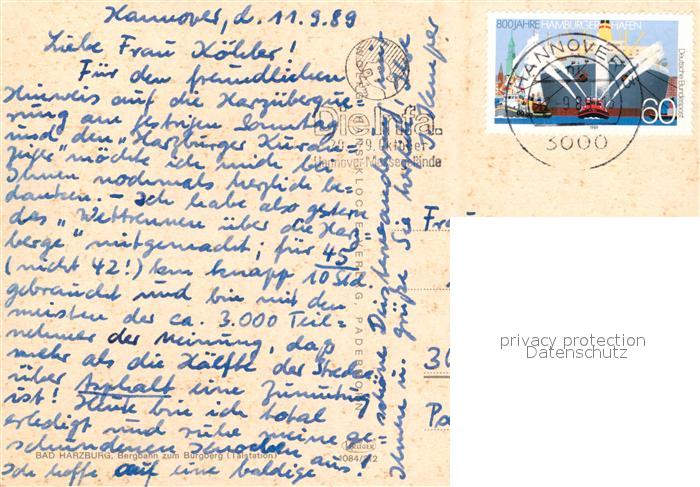 Hannover, d. 11.9.89
Liebe Frau Köhler!
Für den freundlichen
Hinweis auf die Harzüberque=
rung am gestrigen Sonntag
und den "Harzburger
möchte ich mich bei
Ihnen nochmals herzlich be=
danken. - Ich habe also gestern
das "Wettrennen über die Harz=
berge" mitgemacht; für 45
(nicht 42!) km knapp 10 Std.
gebraucht und bin mit den
meisten der ca. 3.000 Teil=
nehmer der Meinung, daß
mehr als die Hälfte der Strecke
über Asphalt eine Zumutung
ist! Heute bin ich total
erledigt und ruhe meine ge=
schundenen Knochen aus!
Ich hoffe auf eine baldige
schöne
Ihnen u. grüße Sie
BAD HARZBURG, Bergbahn zum Burgberg (Talstation)
1084/272
VERLAG, PADERBORN
Dienta.
Oktober
Hannover-Messegelände
800 JAHRE HAMBURGER HAFEN
Deutsche Bundespost
60
HANNOVER
3000
Frau
30
privacy protection
Datenschutz